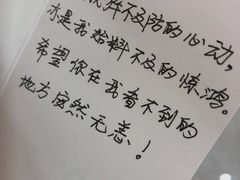 猝不及防的心动，
亦是我始料不及的惊鸿。
希望你在我看不到的
地方安然无恙！